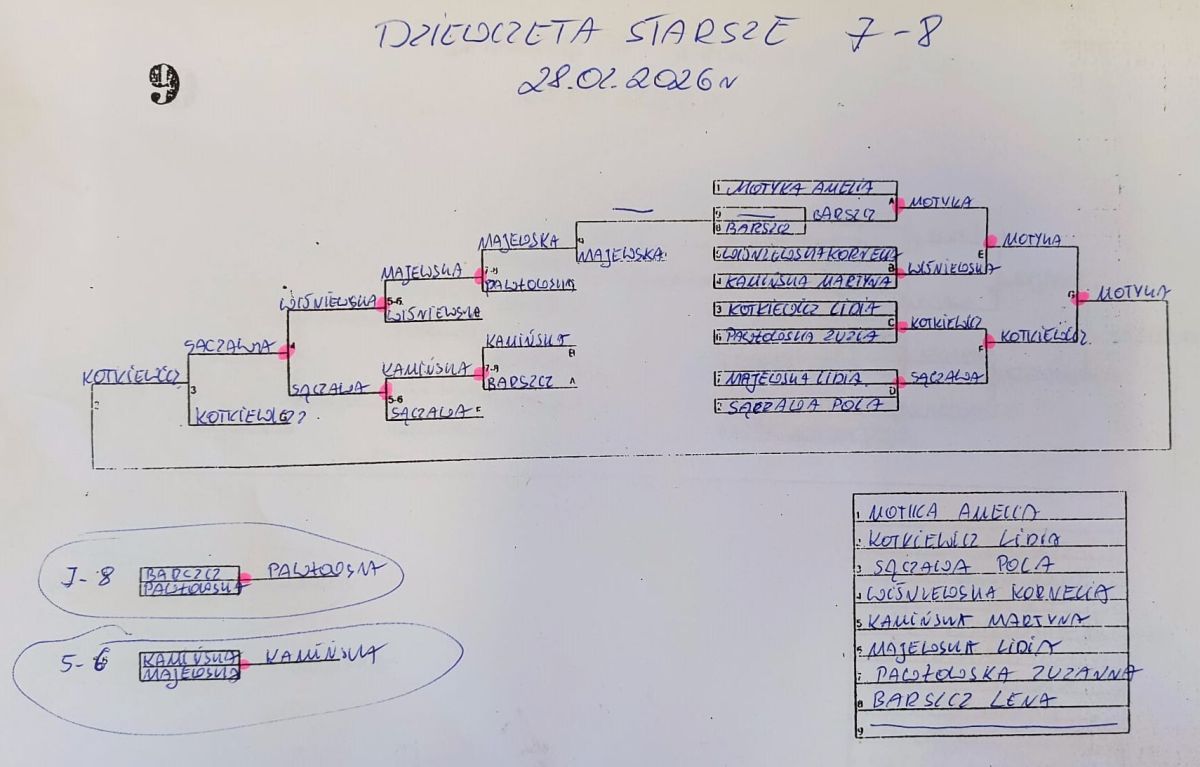 DZIEWCZETA STARSZE 7-8
9
28.02.2026r
1 MOTYKA AMELIA
A
MOTYKA
9
BARSZCZ
8 BARSZCZ
MAJEWSKA
MAJEWSKA
MOTYKA
E
WIŚNIEWSKA KORNELIA
B
WIŚNIEWSKA
4 KAMIŃSKA MARTYNA
MAJEWSKA
7-8
PAWŁOWSKA
WIŚNIEWSKA
5-6
WIŚNIEWSKA
G
MOTYKA
3 KOTKIEWICZ LIDIA
C
KOTKIEWICZ
6 PAWŁOWSKA ZUZIA
F
KOTKIEWICZ
SĄCZAWA
4
KAMIŃSKA
B
KAMIŃSKA
7-8
BARSZCZ A
KOTKIEWICZ
2
3
SĄCZAWA
5-6
SĄCZAWA F
KOTKIEWICZ
7 MAJEWSKA LIDIA
D
SĄCZAWA
2 SĄCZAWA POLA
1 MOTYKA AMELIA
2 KOTKIEWICZ LIDIA
3 SĄCZAWA POLA
4 WIŚNIEWSKA KORNELIA
5 KAMIŃSKA MARTYNA
6 MAJEWSKA LIDIA
7 PAWŁOWSKA ZUZANNA
8 BARSZCZ LENA
9
7-8
BARSZCZ
PAWŁOWSKA
PAWŁOWSKA
5-6
KAMIŃSKA
MAJEWSKA
KAMIŃSKA